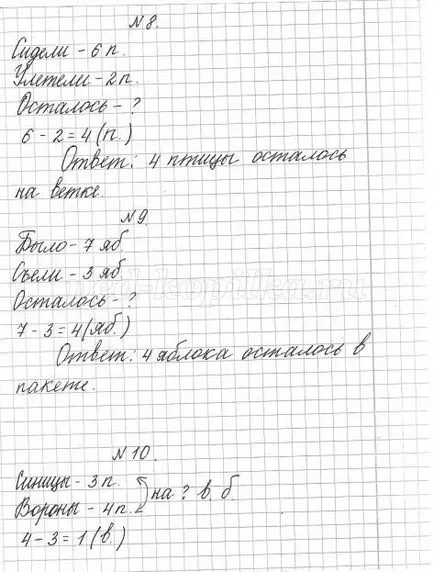 №8.
Сидели - 6 п.
Улетели - 2 п.
Осталось - ?
6 - 2 = 4 (п.)
Ответ: 4 птицы осталось
на ветке.
№9.
Было - 7 яб.
Съели - 3 яб
Осталось - ?
7 - 3 = 4 (яб.)
Ответ: 4 яблока осталось в
пакете.
№10.
Синицы - 3 п.
на ? в. б.
Вороны - 4 п.
4 - 3 = 1 (в.)